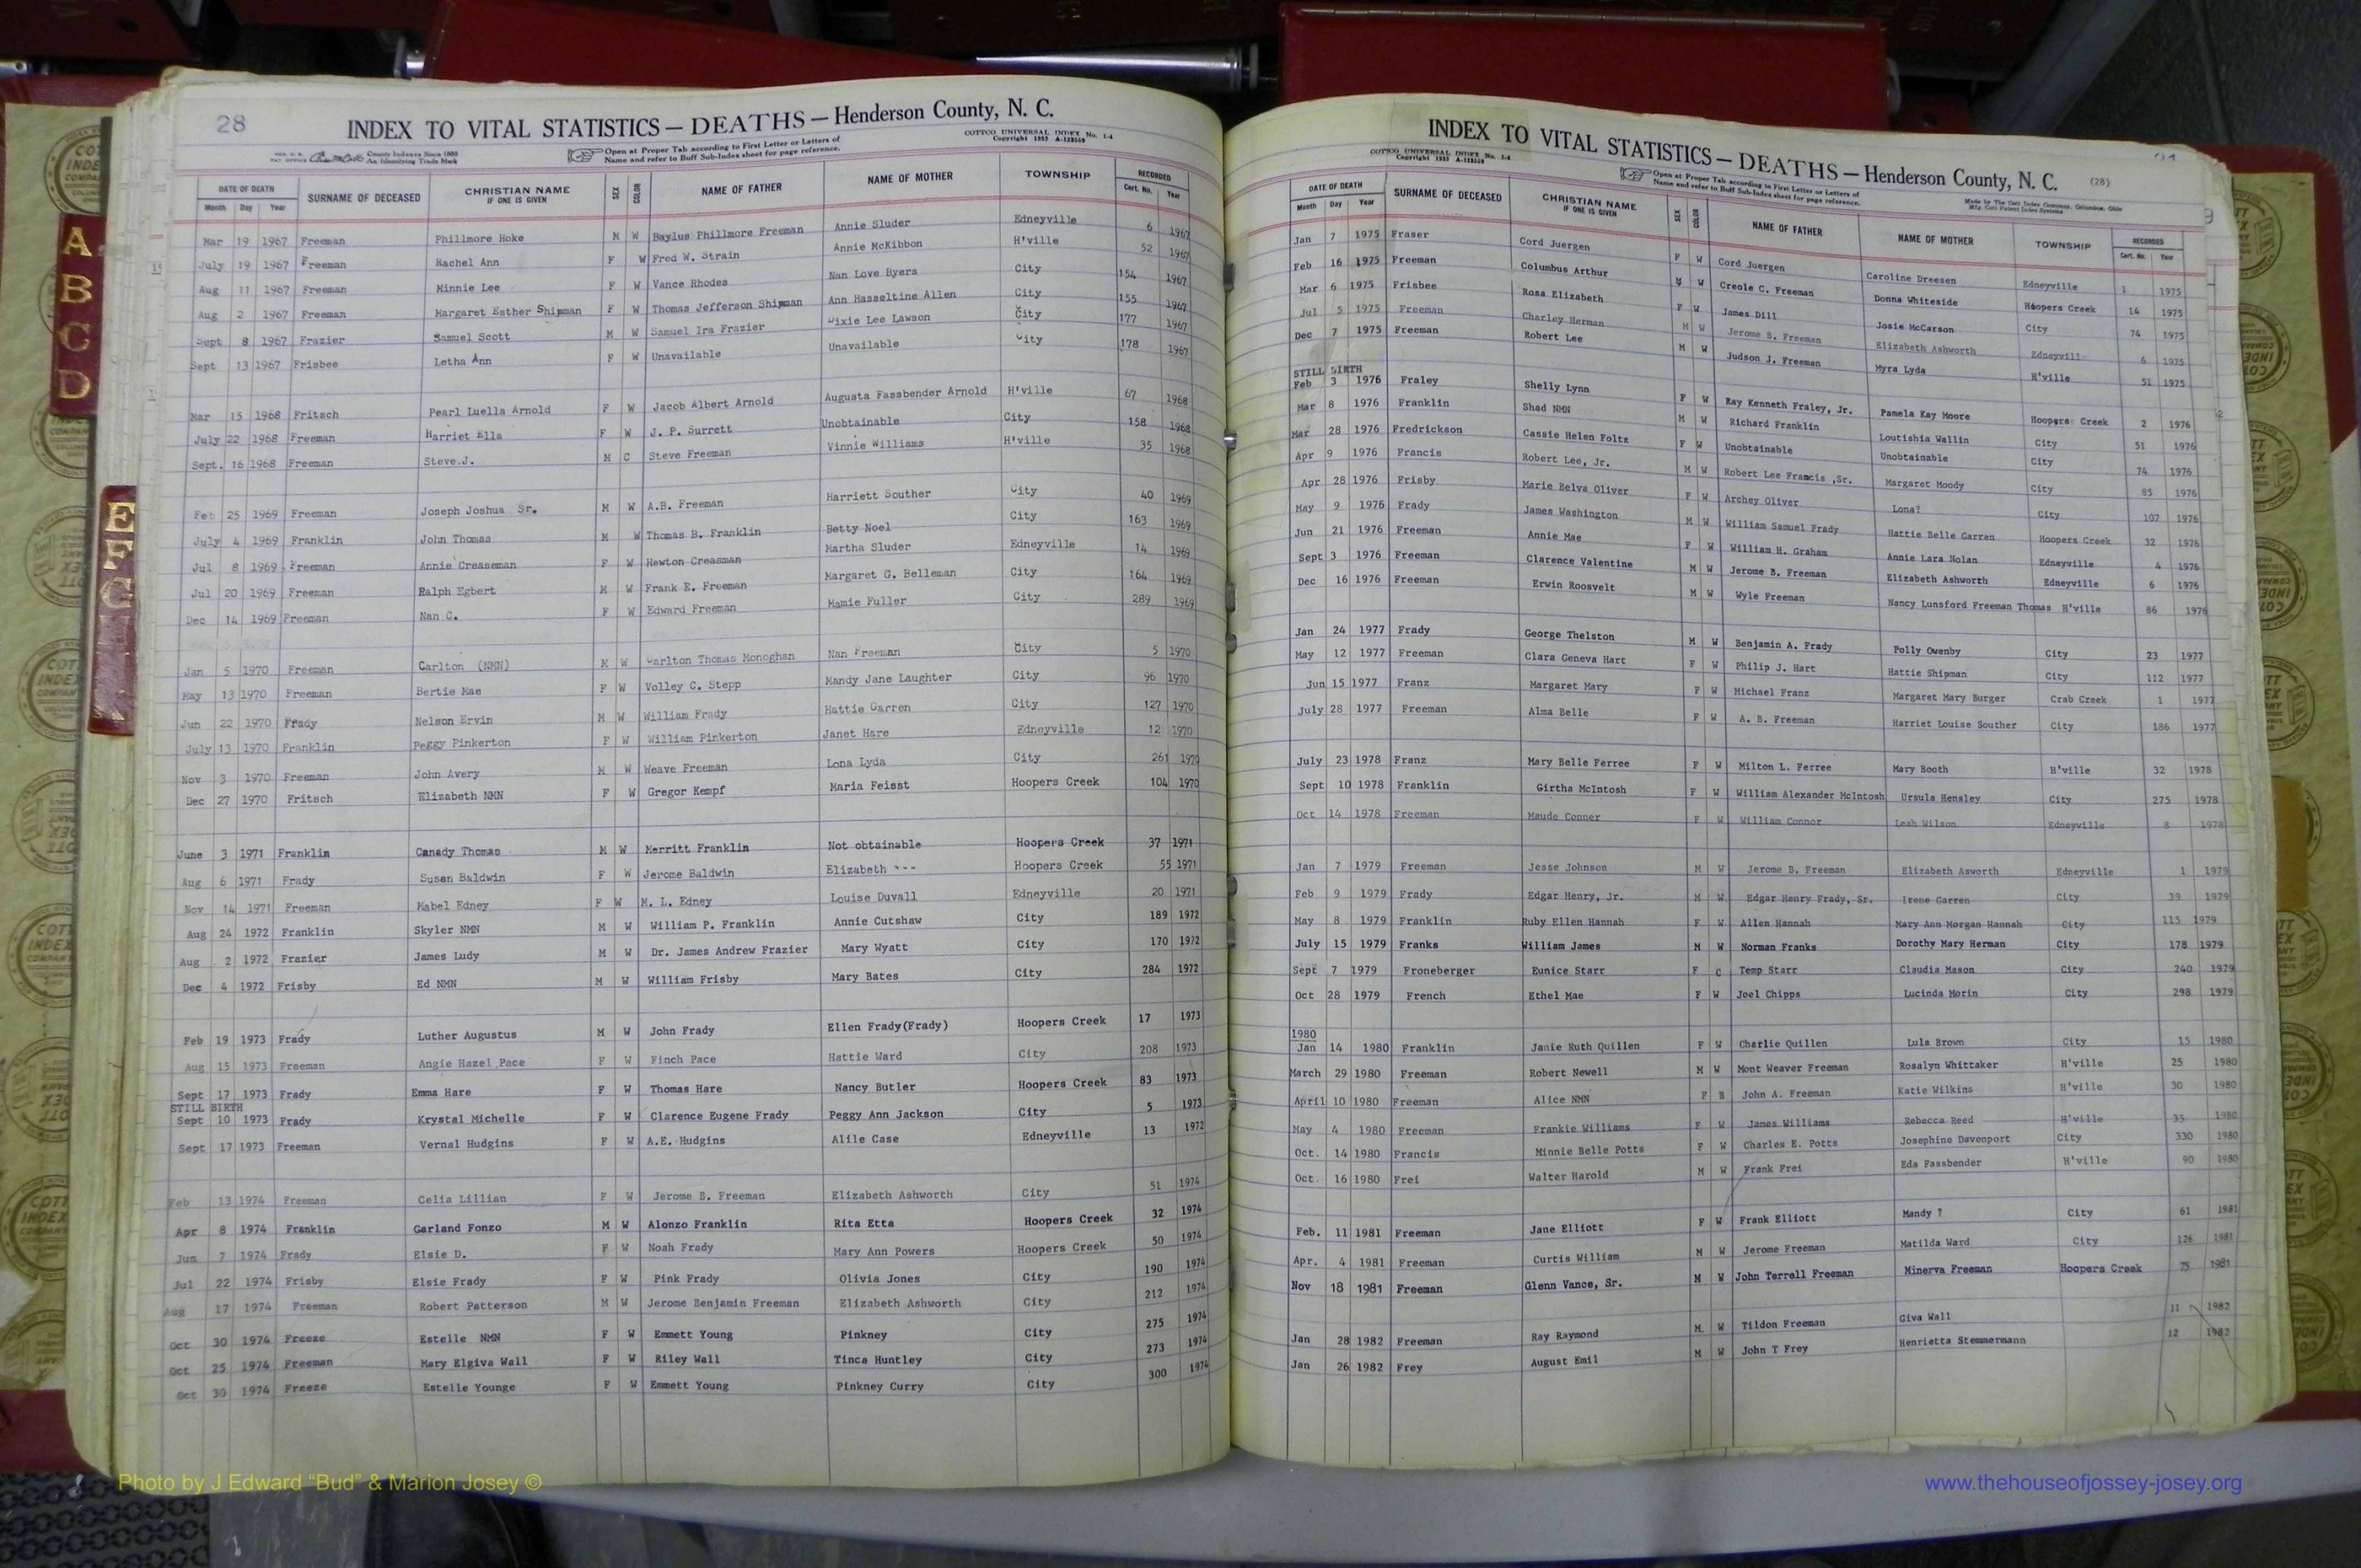 28
INDEX TO VITAL STATISTICS — DEATHS — Henderson County, N. C.
County Indexes Since 1888
An Identifying Trade Mark
Open at Proper Tab according to First Letter or Letters of
Name and refer to Buff Sub-Index sheet for page reference.
COTTCO UNIVERSAL INDEX No. 1-4
Copyright 1933 A-122559
DATE OF DEATH SURNAME OF DECEASED CHRISTIAN NAME IF ONE IS GIVEN SEX COLOR NAME OF FATHER NAME OF MOTHER TOWNSHIP RECORDED
Month Day Year Cert. No. Year
Mar 19 1967 Freeman Phillmore Hoke M W Baylus Phillmore Freeman Annie Sluder Edneyville 6 1967
July 19 1967 Freeman Rachel Ann F W Fred W. Strain Annie McKibbon H'ville 52 1967
Aug 11 1967 Freeman Minnie Lee F W Vance Rhodes Nan Love Byers City 154 1967
Aug 2 1967 Freeman Margaret Esther Shipman F W Thomas Jefferson Shipman Ann Hasseltine Allen City 155 1967
Sept 8 1967 Frazier Samuel Scott M W Samuel Ira Frazier Dixie Lee Lawson City 177 1967
Sept 13 1967 Frisbee Letha Ann F W Unavailable Unavailable City 178 1967
Mar 15 1968 Fritsch Pearl Luella Arnold F W Jacob Albert Arnold Augusta Fassbender Arnold H'ville 67 1968
July 22 1968 Freeman Harriet Ella F W J. P. Surrett Unobtainable City 158 1968
Sept. 16 1968 Freeman Steve J. M C Steve Freeman Vinnie Williams H'ville 35 1968
Feb 25 1969 Freeman Joseph Joshua Sr. M W A.B. Freeman Harriett Souther City 40 1969
July 4 1969 Franklin John Thomas M W Thomas B. Franklin Betty Noel City 163 1969
Jul 8 1969 Freeman Annie Creaseman F W Hewton Creasman Martha Sluder Edneyville 14 1969
Jul 20 1969 Freeman Ralph Egbert M W Frank E. Freeman Margaret G. Belleman City 164 1969
Dec 14 1969 Freeman Nan C. F W Edward Freeman Mamie Fuller City 289 1969
Jan 5 1970 Freeman Carlton (NMN) M W Carlton Thomas Monoghan Nan Freeman City 5 1970
May 13 1970 Freeman Bertie Mae F W Volley C. Stepp Mandy Jane Laughter City 96 1970
Jun 22 1970 Frady Nelson Ervin M W William Frady Hattie Garren City 127 1970
July 13 1970 Franklin Peggy Pinkerton F W William Pinkerton Janet Hare Edneyville 12 1970
Nov 3 1970 Freeman John Avery M W Weave Freeman Lona Lyda City 261 1970
Dec 27 1970 Fritsch Elizabeth NMN F W Gregor Kempf Maria Feisst Hoopers Creek 104 1970
June 3 1971 Franklin Canady Thomas M W Merritt Franklin Not obtainable Hoopers Creek 37 1971
Aug 6 1971 Frady Susan Baldwin F W Jerome Baldwin Elizabeth --- Hoopers Creek 55 1971
Nov 14 1971 Freeman Mabel Edney F W M. L. Edney Louise Duvall Edneyville 20 1971
Aug 24 1972 Franklin Skyler NMN M W William P. Franklin Annie Cutshaw City 189 1972
Aug 2 1972 Frazier James Ludy M W Dr. James Andrew Frazier Mary Wyatt City 170 1972
Dec 4 1972 Frisby Ed NMN M W William Frisby Mary Bates City 284 1972
Feb 19 1973 Frady Luther Augustus M W John Frady Ellen Frady(Frady) Hoopers Creek 17 1973
Aug 15 1973 Freeman Angie Hazel Pace F W Finch Pace Hattie Ward City 208 1973
Sept 17 1973 Frady Emma Hare F W Thomas Hare Nancy Butler Hoopers Creek 83 1973
STILL BIRTH
Sept 10 1973 Frady Krystal Michelle F W Clarence Eugene Frady Peggy Ann Jackson City 5 1973
Sept 17 1973 Freeman Vernal Hudgins F W A.E. Hudgins Alile Case Edneyville 13 1972
Feb 13 1974 Freeman Celia Lillian F W Jerome B. Freeman Elizabeth Ashworth City 51 1974
Apr 8 1974 Franklin Garland Fonzo M W Alonzo Franklin Rita Etta Hoopers Creek 32 1974
Jun 7 1974 Frady Elsie D. F W Noah Frady Mary Ann Powers Hoopers Creek 50 1974
Jul 22 1974 Frisby Elsie Frady F W Pink Frady Olivia Jones City 190 1974
Aug 17 1974 Freeman Robert Patterson M W Jerome Benjamin Freeman Elizabeth Ashworth City 212 1974
Oct 30 1974 Freeze Estelle NMN F W Emmett Young Pinkney City 275 1974
Oct 25 1974 Freeman Mary Elgiva Wall F W Riley Wall Tinca Huntley City 273 1974
Oct 30 1974 Freeze Estelle Younge F W Emmett Young Pinkney Curry City 300 1974
INDEX TO VITAL STATISTICS — DEATHS — Henderson County, N. C. (28)
COTTCO UNIVERSAL INDEX No. 1-4
Copyright 1933 A-122559
Open at Proper Tab according to First Letter or Letters of
Name and refer to Buff Sub-Index sheet for page reference.
Made by The Cott Index Company, Columbus, Ohio
Mfg. Cott Patent Index Systems
DATE OF DEATH SURNAME OF DECEASED CHRISTIAN NAME IF ONE IS GIVEN SEX COLOR NAME OF FATHER NAME OF MOTHER TOWNSHIP RECORDED
Month Day Year Cert. No. Year
Jan 7 1975 Fraser Cord Juergen F W Cord Juergen Caroline Dreesen Edneyville 1 1975
Feb 16 1975 Freeman Columbus Arthur M W Creole C. Freeman Donna Whiteside Hoopers Creek 14 1975
Mar 6 1975 Frisbee Rosa Elizabeth F W James Dill Josie McCarson City 74 1975
Jul 5 1975 Freeman Charley Herman M W Jerome B. Freeman Elizabeth Ashworth Edneyvill 6 1975
Dec 7 1975 Freeman Robert Lee M W Judson J. Freeman Myra Lyda H'ville 51 1975
STILL BIRTH
Feb 3 1976 Fraley Shelly Lynn F W Ray Kenneth Fraley, Jr. Pamela Kay Moore Hoopers Creek 2 1976
Mar 8 1976 Franklin Shad NMN M W Richard Franklin Loutishia Wallin City 51 1976
Mar 28 1976 Fredrickson Cassie Helen Foltz F W Unobtainable Unobtainable City 74 1976
Apr 9 1976 Francis Robert Lee, Jr. M W Robert Lee Francis ,Sr. Margaret Moody City 85 1976
Apr 28 1976 Frisby Marie Belva Oliver F W Archey Oliver Lona? City 107 1976
May 9 1976 Frady James Washington M W William Samuel Frady Hattie Belle Garren Hoopers Creek 32 1976
Jun 21 1976 Freeman Annie Mae F W William H. Graham Annie Lara Nolan Edneyville 4 1976
Sept 3 1976 Freeman Clarence Valentine M W Jerome B. Freeman Elizabeth Ashworth Edneyville 6 1976
Dec 16 1976 Freeman Erwin Roosvelt M W Wyle Freeman Nancy Lunsford Freeman Thomas H'ville 86 1976
Jan 24 1977 Frady George Thelston M W Benjamin A. Frady Polly Owenby City 23 1977
May 12 1977 Freeman Clara Geneva Hart F W Philip J. Hart Hattie Shipman City 112 1977
Jun 15 1977 Franz Margaret Mary F W Michael Franz Margaret Mary Burger Crab Creek 1 1977
July 28 1977 Freeman Alma Belle F W A. B. Freeman Harriet Louise Souther City 186 1977
July 23 1978 Franz Mary Belle Ferree F W Milton L. Ferree Mary Booth H'ville 32 1978
Sept 10 1978 Franklin Girtha McIntosh F W William Alexander McIntosh Ursula Hensley City 275 1978
Oct 14 1978 Freeman Maude Conner F W William Connor Leah Wilson Edneyville 8 1978
Jan 7 1979 Freeman Jesse Johnson M W Jerome B. Freeman Elizabeth Asworth Edneyville 1 1979
Feb 9 1979 Frady Edgar Henry, Jr. M W Edgar Henry Frady, Sr. Irene Garren City 39 1979
May 8 1979 Franklin Ruby Ellen Hannah F W Allen Hannah Mary Ann Morgan Hannah City 115 1979
July 15 1979 Franks William James M W Norman Franks Dorothy Mary Herman City 178 1979
Sept 7 1979 Froneberger Eunice Starr F C Temp Starr Claudia Mason City 240 1979
Oct 28 1979 French Ethel Mae F W Joel Chipps Lucinda Morin City 298 1979
1980
Jan 14 1980 Franklin Janie Ruth Quillen F W Charlie Quillen Lula Brown City 15 1980
March 29 1980 Freeman Robert Newell M W Mont Weaver Freeman Rosalyn Whittaker H'ville 25 1980
April 10 1980 Freeman Alice NMN F B John A. Freeman Katie Wilkins H'ville 30 1980
May 4 1980 Freeman Frankie Williams F W James Williams Rebecca Reed H'ville 35 1980
Oct. 14 1980 Francis Minnie Belle Potts F W Charles E. Potts Josephine Davenport City 330 1980
Oct. 16 1980 Frei Walter Harold M W Frank Frei Eda Fassbender H'ville 90 1980
Feb. 11 1981 Freeman Jane Elliott F W Frank Elliott Mandy ? City 61 1981
Apr. 4 1981 Freeman Curtis William M W Jerome Freeman Matilda Ward City 126 1981
Nov 18 1981 Freeman Glenn Vance, Sr. M W John Terrell Freeman Minerva Freeman Hoopers Creek 75 1981
Jan 28 1982 Freeman Ray Raymond M. W Tildon Freeman Giva Wall 11 1982
Jan 26 1982 Frey August Emil M W John T Frey Henrietta Stemmermann 12 1982
A
B
C
D
E
F
G
Photo by J Edward “Bud” & Marion Josey ©
www.thehouseofjossey-josey.org